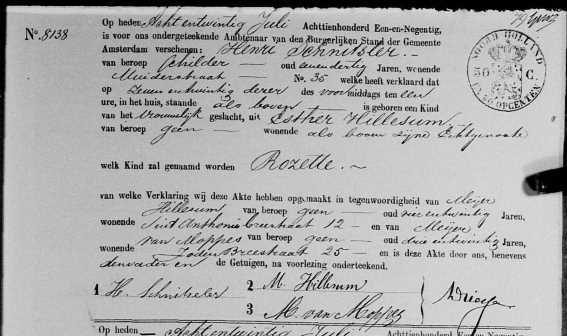 Nº 8138
Op heden Acht en twintig Juli Achttienhonderd Een-en-Negentig,
is voor ons ondergeteekende Ambtenaar van den Burgerlijken Stand der Gemeente
Amsterdam verschenen: Henri Schnitzler.
van beroep Schilder — oud een en dertig Jaren, wonende
Muiderstraat No. 35 welke heeft verklaard dat
op zeven en twintig dezer des voormiddags ten een
ure, in het huis, staande als boven — is geboren een Kind
van het vrouwelijk geslacht, uit Esther Hillesum
van beroep geen — wonende als boven zijne Echtgenoote
welk Kind zal genaamd worden Rozette. —
van welke Verklaring wij deze Akte hebben opgemaakt in tegenwoordigheid van Meijer
Hillesum van beroep geen — oud vier en twintig Jaren,
wonende Sint Anthonie Breestraat 12 — en van Meijer
van Moppes van beroep geen — oud drie en twintig Jaren,
wonende Joden Breestraat 25 — en is deze Akte door ons, benevens
den vader en de Getuigen, na voorlezing onderteekend.
1 H. Schnitzler 2 M. Hillesum
3 M. van Moppes
NOORD HOLLAND
50 C.
EN 40 OPCENTEN
Op heden Acht en twintig Juli Achttienhonderd Een-en-Negentig